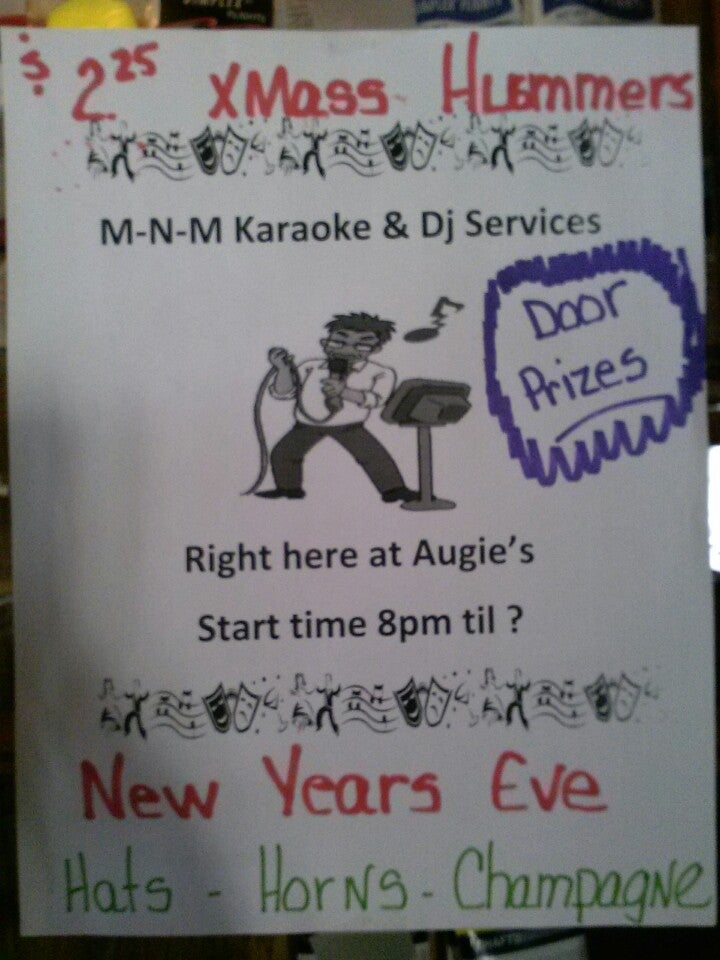 $2.25 XMass Hummers
M-N-M Karaoke & Dj Services
Door
Prizes
Right here at Augie's
Start time 8pm til ?
New Years Eve
Hats - Horns - Champagne